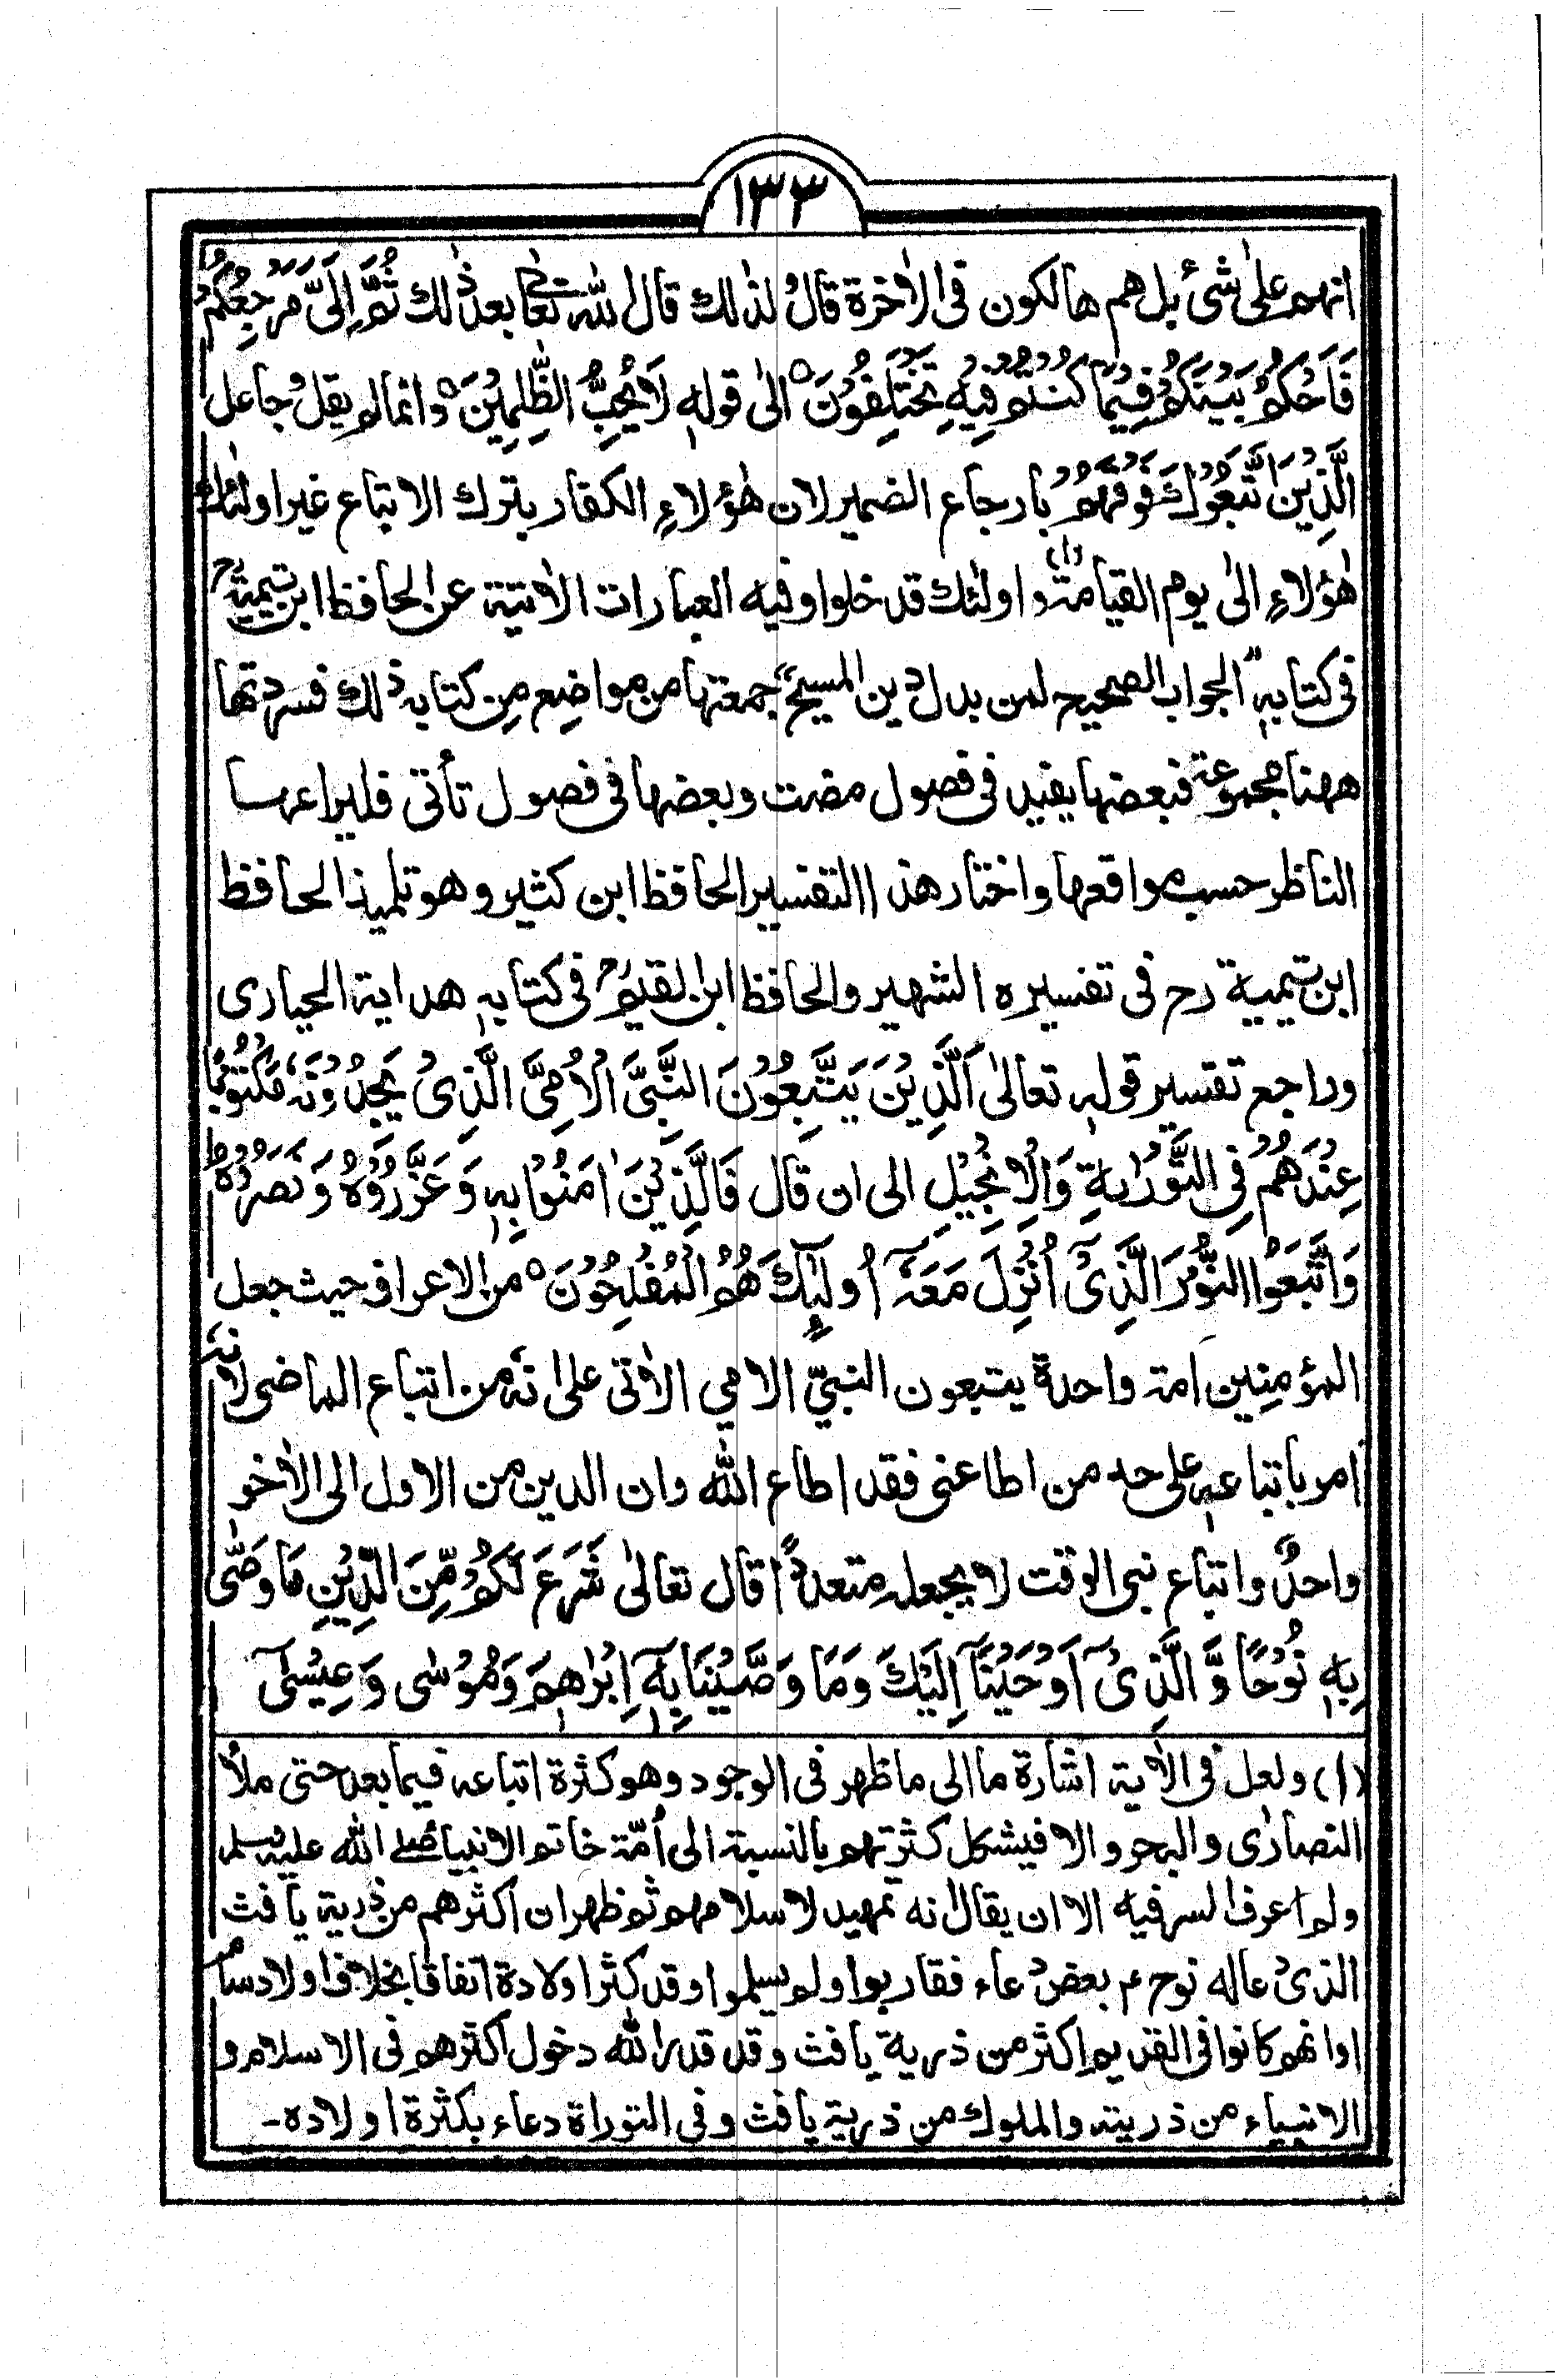 ١٣٣
انهم علىٰ شئ بل هم هالكون فى الاٰخرة قالُ لذٰلك قال الله تعالى بعد ذٰلك ثُمَّ اِلَىَّ مَرْجِعُكُمْ
فَاَحْكُمُ بَيْنَكُمْ فِيْمَا كُنْتُمْ فِيْهِ تَخْتَلِفُوْنَ ٥ الىٰ قوله لَا يُحِبُّ الظّٰلِمِيْنَ ٥ وانما لم يقلُ جاعل
الَّذِيْنَ اتَّبَعُوْكَ فَوْقَهُمْ بارجاع الضمير لان هٰؤلاءِ الكفار بترك الاتباع غير اولٰئك
هٰؤلاءِ الىٰ يوم القيامة (١) واولٰئك قد خلوا وفيه العبارات الاٰتية عن الحافظ ابن تيمية رح
فى كتابه "الجواب الصحيح لمن بدل دين المسيح" جمعتها من مواضِع مِن كتابه ذٰلك فسردتها
ههنا مجموعة فبعضها يفيد فى فصول مضت وبعضها فى فصول تأتى فليراعها
الناظر حسب مواقعها واختار هذا التفسير الحافظ ابن كثير وهو تلميذ الحافظ
ابن تيمية رح فى تفسيره الشهير والحافظ ابن القيم رح فى كتابه هداية الحيارى
وراجع تفسير قوله تعالىٰ اَلَّذِيْنَ يَتَّبِعُوْنَ النَّبِىَّ الْاُمِّىَّ الَّذِىْ يَجِدُوْنَهٗ مَكْتُوْبًا
عِنْدَهُمْ فِى التَّوْرٰىةِ وَالْاِنْجِيْلِ الى ان قال فَالَّذِيْنَ اٰمَنُوْا بِهٖ وَعَزَّرُوْهُ وَنَصَرُوْهُ
وَاتَّبَعُوا النُّوْرَ الَّذِىْٓ اُنْزِلَ مَعَهٗٓ اُولٰٓئِكَ هُمُ الْمُفْلِحُوْنَ ٥ من الاعراف حيث جعل
المؤمنِين امة واحدة يتبعون النبيّ الامي الاٰتى على انهٗ من اتباع الماضى لانهٗ
امر باتباعهٖ على حد من اطاعنى فقد اطاع الله وان الدين من الاول الى الاٰخر
واحدٌ واتباع نبى الوقت لا يجعله متعددًا قال تعالىٰ شَرَعَ لَكُمْ مِّنَ الدِّيْنِ مَا وَصّٰى
بِهٖ نُوْحًا وَّالَّذِىْٓ اَوْحَيْنَآ اِلَيْكَ وَمَا وَصَّيْنَا بِهٖٓ اِبْرٰهِيْمَ وَمُوْسٰى وَعِيْسٰٓى
(١) ولعل فى الاٰية اشارة ما الى ما ظهر فى الوجود وهو كثرة اتباعه فيما بعد حتى ملأ
النصارٰى والبحر والا فيشكل كثرتهم بالنسبة الى اُمّة خاتم الانبياء صلے الله عليه وسلم
ولم اعرف السر فيه الا ان يقال انه تمهيد لاسلامهم ثم ظهر ان اكثرهم من ذرية يافث
الذىْ عاله نوح ع بعضْ دعاء فقاربوا ولم يسلموا وقد كثر اولادهٗ اتفاقا بخلاف اولاد سام
اوانهم كانوا فى القديم اكثر من ذرية يافث وقد قدر الله دخول اكثرهم فى الاسلام و
الانبياء من ذريته والملوك من ذرية يافث وفى التوراة دعاء بكثرة اولاده-